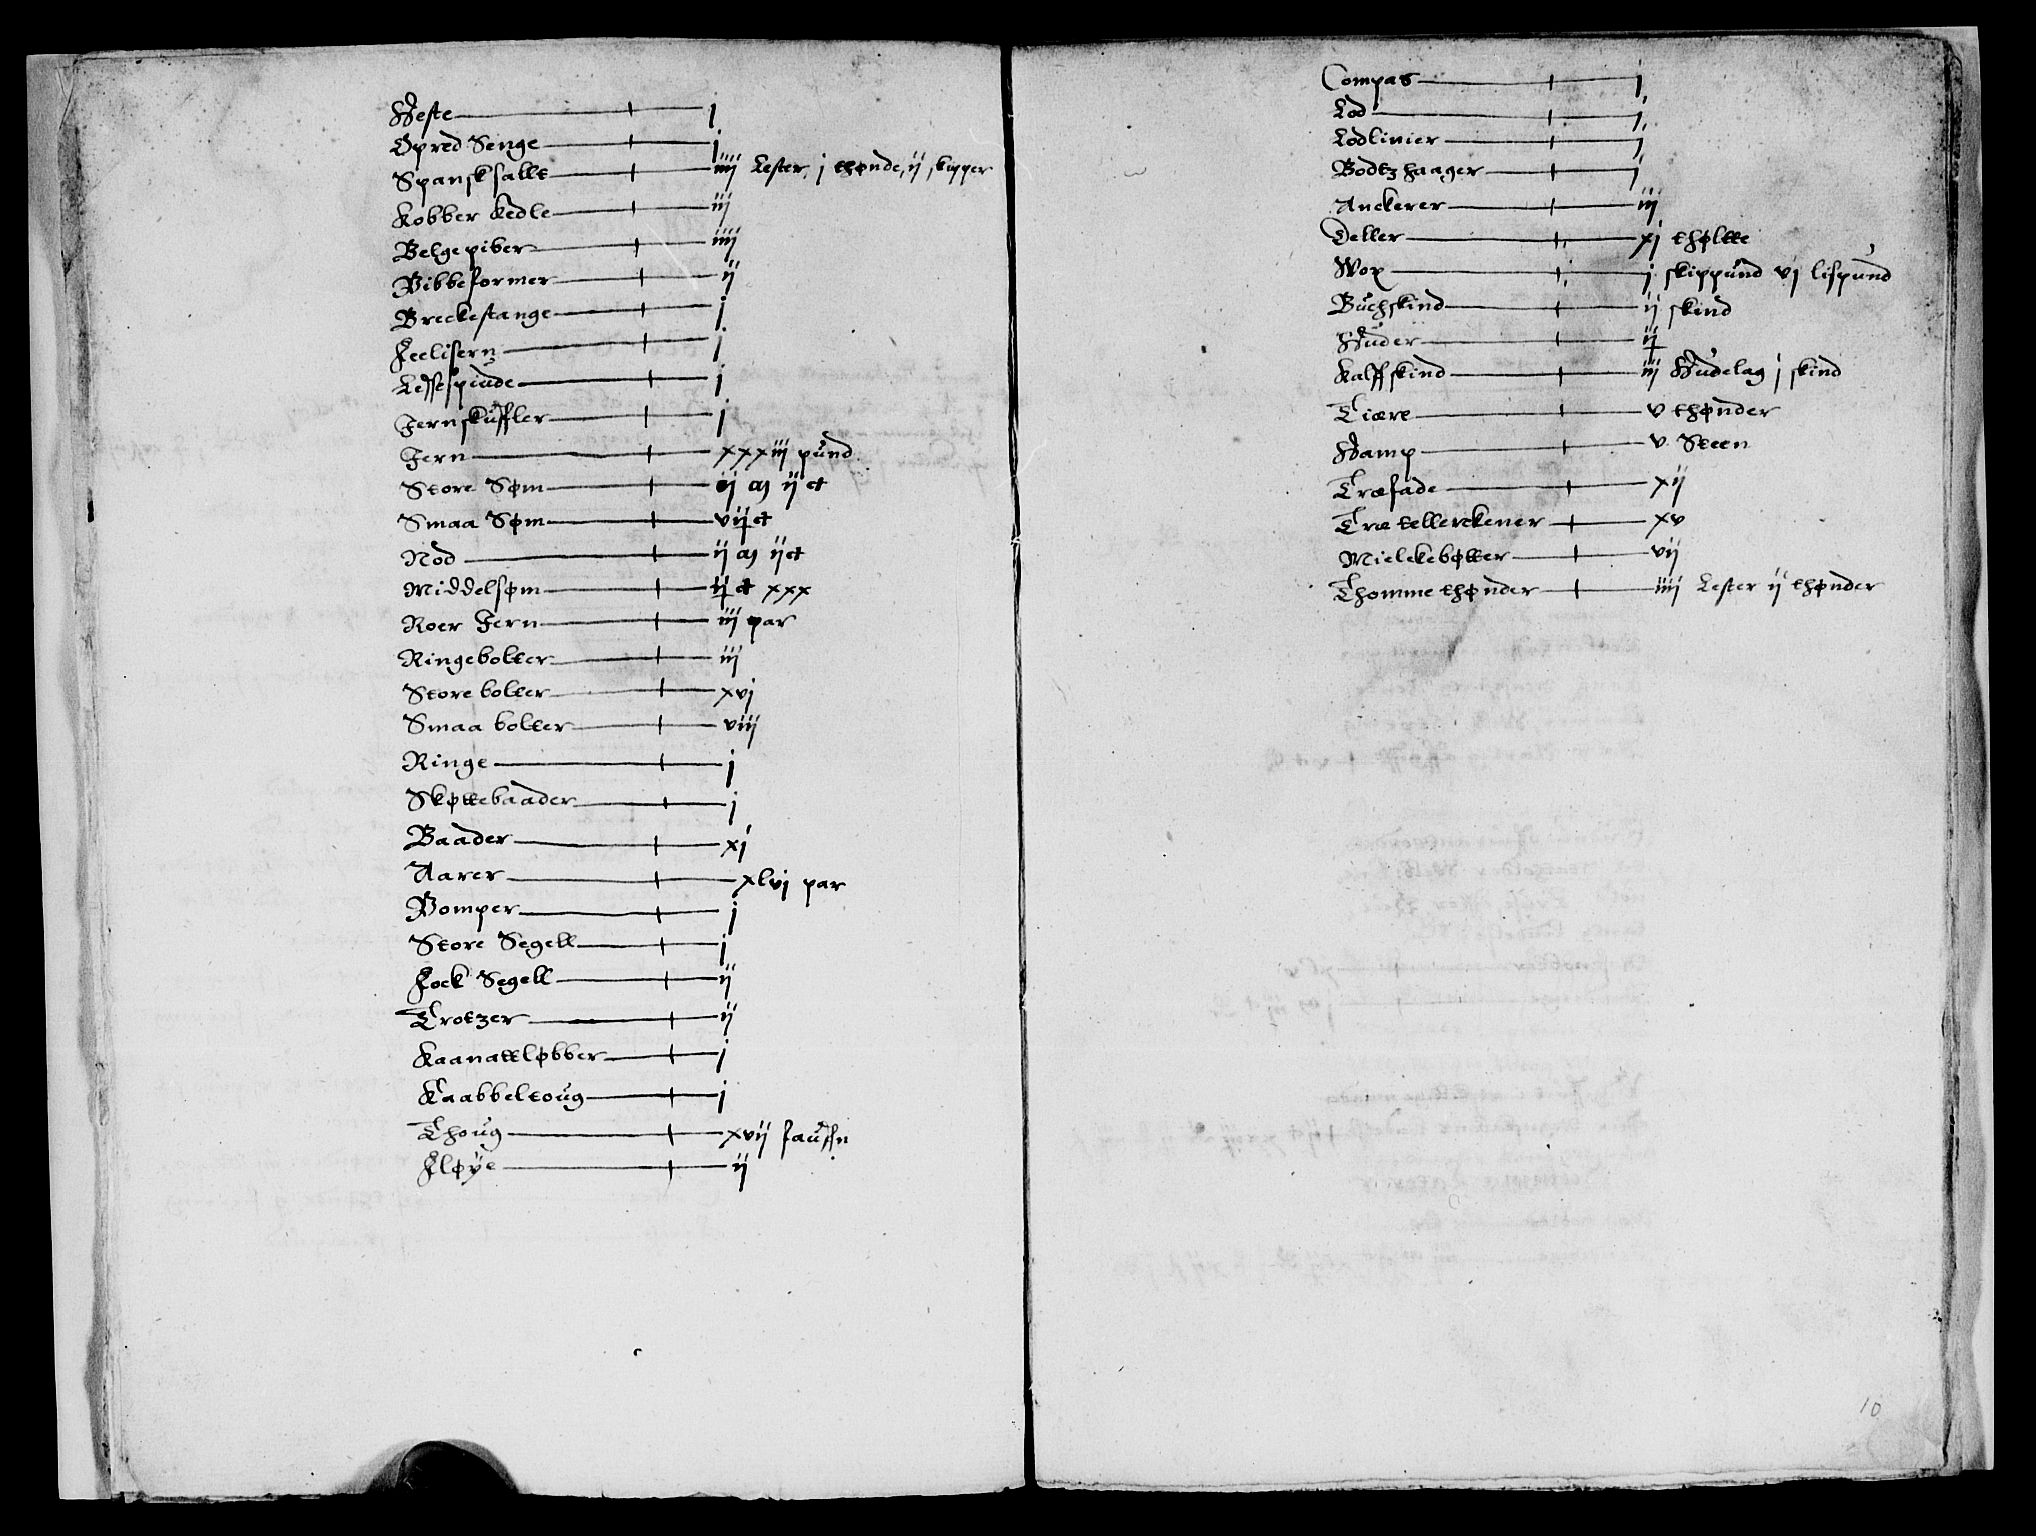 Heste j
Opred Senge j
Spansk sallt iiij Lester, j thønde, ij skipper
Kobber Kedle iij
Belgepiber iiij
Pibbeformer ij
Breckestange j
Feelisern j
Leffespinde j
Jernskuffler j
Jern xxxiij pund
Store Søm ij ɱ ij ct
Smaa Søm vij ct
Nod ij ɱ ij ct
Middelsøm ij ct xxx
Roer Jern iij par
Ringebolter iij
Store bolter xvj
Smaa bolter viij
Ringe j
Skøttebaader j
Baader xj
Aarer xlvj par
Pomper j
Store Segell j
Fock Segell ij
Trotzer ij
Kaanattløbber j
Kaabbeltoug j
Thoug xvij fauffn
Fløye ij
Compas j
Lod j
Lodlinier j
Bodtzhaager j
Anckerer iij
Deller xj thøltte
Wox j skippund vj lispund
Buchskind ij skind
Huder ij
Kalffskind iij Hudelag j skind
Tiære v thønder
Hamp v Steen
Træfade xij
Træ tellerckener xv
Mielckebøtter vij
Thomme thønder iiij Lester ij thønder
10